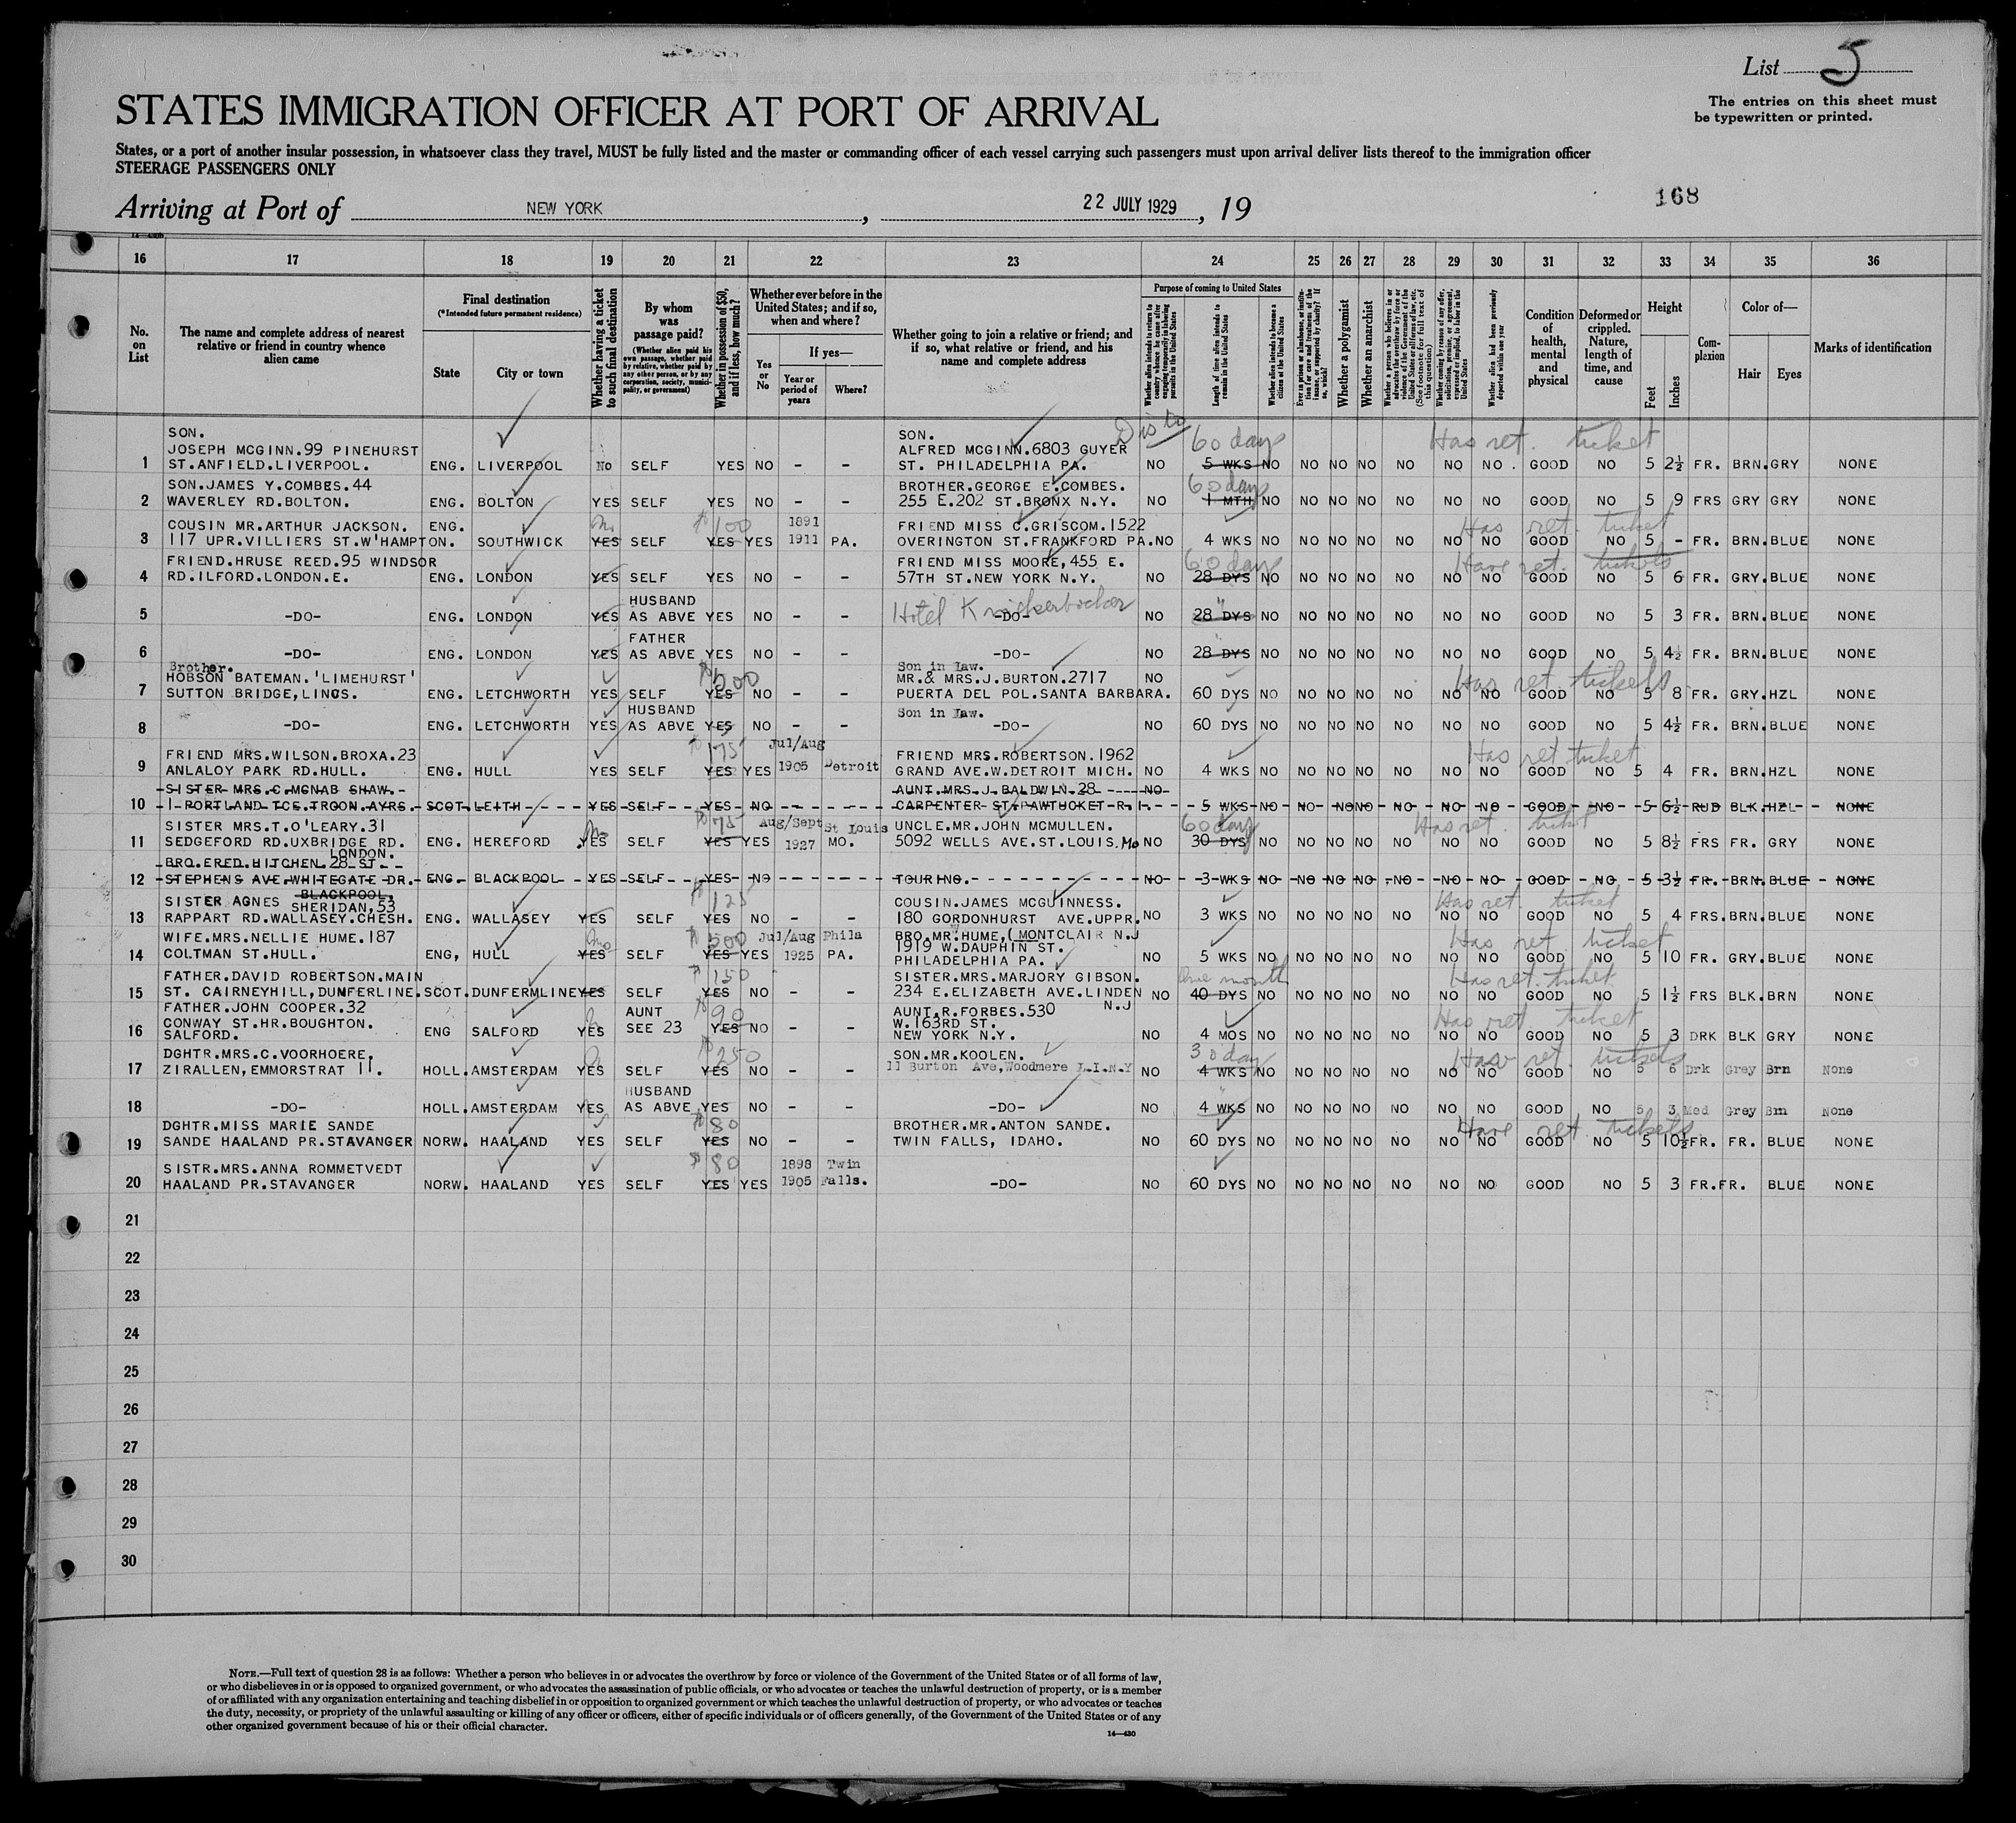 List 5
The entries on this sheet must
be typewritten or printed.
STATES IMMIGRATION OFFICER AT PORT OF ARRIVAL
States, or a port of another insular possession, in whatsoever class they travel, MUST be fully listed and the master or commanding officer of each vessel carrying such passengers must upon arrival deliver lists thereof to the immigration officer
STEERAGE PASSENGERS ONLY
168
Arriving at Port of NEW YORK, 22 JULY 1929, 19
16 17 18 19 20 21 22 23 24 25 26 27 28 29 30 31 32 33 34 35 36
No. on List
The name and complete address of nearest relative or friend in country whence alien came
Final destination (*Intended future permanent residence)
State
City or town
Whether having a ticket to such final destination
By whom was passage paid?
(Whether alien paid his own passage, whether paid by relative, whether paid by any other person, or by any corporation, society, municipality, or government)
Whether in possession of $50, and if less, how much?
Whether ever before in the United States; and if so, when and where?
Yes or No
If yes—
Year or period of years
Where?
Whether going to join a relative or friend; and if so, what relative or friend, and his name and complete address
Purpose of coming to United States
Length of time alien intends to remain in the United States
Whether alien intends to become a citizen of the United States
Whether a polygamist
Whether an anarchist
Condition of health, mental and physical
Deformed or crippled. Nature, length of time, and cause
Height
Feet
Inches
Complexion
Color of—
Hair
Eyes
Marks of identification
SON. SON. 60 days Has ret. ticket
JOSEPH MCGINN.99 PINEHURST ALFRED MCGINN.6803 GUYER
1 ST.ANFIELD.LIVERPOOL. ENG. LIVERPOOL No SELF YES NO - - ST. PHILADELPHIA PA. NO 5 WKS NO NO NO NO NO NO NO . GOOD NO 5 2½ FR. BRN. GRY NONE
SON.JAMES Y.COMBES.44 BROTHER.GEORGE E.COMBES. 60 days
2 WAVERLEY RD.BOLTON. ENG. BOLTON YES SELF YES NO - - 255 E.202 ST.BRONX N.Y. NO 1 MTH NO NO NO NO NO NO NO GOOD NO 5 9 FRS GRY GRY NONE
COUSIN MR.ARTHUR JACKSON. ENG. No $100 1891 FRIEND MISS C.GRISCOM.1522 Has ret. ticket
3 117 UPR.VILLIERS ST.W'HAMPTON. SOUTHWICK YES SELF YES YES 1911 PA. OVERINGTON ST.FRANKFORD PA.NO 4 WKS NO NO NO NO NO NO NO GOOD NO 5 - FR. BRN. BLUE NONE
FRIEND.HRUSE REED.95 WINDSOR FRIEND MISS MOORE,455 E. 60 days Have ret. tickets
4 RD.ILFORD.LONDON.E. ENG. LONDON YES SELF YES NO - - 57TH ST.NEW YORK N.Y. NO 28 DYS NO NO NO NO NO NO NO GOOD NO 5 6 FR. GRY. BLUE NONE
HUSBAND Hotel Knickerbocker "
5 -DO- ENG. LONDON YES AS ABVE YES NO - - -DO- NO 28 DYS NO NO NO NO NO NO NO GOOD NO 5 3 FR. BRN. BLUE NONE
FATHER "
6 -DO- ENG. LONDON YES AS ABVE YES NO - - -DO- NO 28 DYS NO NO NO NO NO NO NO GOOD NO 5 4½ FR. BRN. BLUE NONE
Brother. Son in Law.
HOBSON BATEMAN.'LIMEHURST' $500 MR.& MRS.J.BURTON.2717 NO Has ret. tickets
7 SUTTON BRIDGE,LINCS. ENG. LETCHWORTH YES SELF YES NO - - PUERTA DEL POL.SANTA BARBARA. 60 DYS NO NO NO NO NO NO NO GOOD NO 5 8 FR. GRY. HZL NONE
HUSBAND Son in Law.
8 -DO- ENG. LETCHWORTH YES AS ABVE YES NO - - -DO- NO 60 DYS NO NO NO NO NO NO NO GOOD NO 5 4½ FR. BRN. BLUE NONE
FRIEND MRS.WILSON.BROXA.23 $175 Jul/Aug FRIEND MRS.ROBERTSON.1962 Has ret ticket
9 ANLALOY PARK RD.HULL. ENG. HULL YES SELF YES YES 1905 Detroit GRAND AVE.W.DETROIT MICH. NO 4 WKS NO NO NO NO NO NO NO GOOD NO 5 4 FR. BRN. HZL NONE
SISTER MRS.C.MCNAB SHAW. AUNT.MRS.J.BALDWIN.28 NO
10 1 PORTLAND TCE.TROON.AYRS. SCOT.LEITH YES SELF YES NO CARPENTER ST.PAWTUCKET R.I. 5 WKS NO NO NO NO NO NO NO GOOD NO 5 6½ RUD BLK. HZL NONE
SISTER MRS.T.O'LEARY.31 No $75 Aug/Sept St Louis UNCLE.MR.JOHN MCMULLEN. 60 days Has ret. ticket
11 SEDGEFORD RD.UXBRIDGE RD. ENG. HEREFORD YES SELF YES YES 1927 MO. 5092 WELLS AVE.ST.LOUIS. Mo NO 30 DYS NO NO NO NO NO NO NO GOOD NO 5 8½ FRS FR. GRY NONE
LONDON.
BRO.FRED.HITCHEN.28 ST.
12 STEPHENS AVE.WHITEGATE DR. ENG. BLACKPOOL YES SELF YES NO TOURING. NO 3 WKS NO NO NO NO NO NO NO GOOD NO 5 3½ FR. BRN. BLUE NONE
BLACKPOOL.
SISTER AGNES SHERIDAN,53 $125 COUSIN.JAMES MCGUINNESS. Has ret. ticket
13 RAPPART RD.WALLASEY.CHESH. ENG. WALLASEY YES SELF YES NO - - 180 GORDONHURST AVE.UPPR. NO 3 WKS NO NO NO NO NO NO NO GOOD NO 5 4 FRS. BRN. BLUE NONE
WIFE.MRS.NELLIE HUME.187 No $500 Jul/Aug Phila BRO.MR.HUME,(MONTCLAIR N.J Has ret ticket
1919 W.DAUPHIN ST.
14 COLTMAN ST.HULL. ENG, HULL YES SELF YES YES 1925 PA. PHILADELPHIA PA. NO 5 WKS NO NO NO NO NO NO NO GOOD NO 5 10 FR. GRY. BLUE NONE
FATHER.DAVID ROBERTSON.MAIN $150 SISTER.MRS.MARJORY GIBSON. One month Has ret. ticket
15 ST. CAIRNEYHILL,DUNFERLINE. SCOT. DUNFERMLINE YES SELF YES NO - - 234 E.ELIZABETH AVE.LINDEN N.J NO 40 DYS NO NO NO NO NO NO NO GOOD NO 5 1½ FRS BLK. BRN NONE
FATHER.JOHN COOPER.32 AUNT $90 AUNT.R.FORBES.530 Has ret ticket
CONWAY ST.HR.BOUGHTON. W.163RD ST.
16 SALFORD. ENG SALFORD YES SEE 23 YES NO - - NEW YORK N.Y. NO 4 MOS NO NO NO NO NO NO NO GOOD NO 5 3 DRK BLK GRY NONE
DGHTR.MRS.C.VOORHOERE, $250 SON.MR.KOOLEN. 30 days Have ret. tickets
17 ZIRALLEN,EMMORSTRAT 11. HOLL. AMSTERDAM YES SELF YES NO - - 11 Burton Ave,Woodmere L.I.N.Y NO 4 WKS NO NO NO NO NO NO NO GOOD NO 5 6 Drk Grey Brn None
HUSBAND "
18 -DO- HOLL. AMSTERDAM YES AS ABVE YES NO - - -DO- NO 4 WKS NO NO NO NO NO NO NO GOOD NO 5 3 Med Grey Brn None
DGHTR.MISS MARIE SANDE $80 BROTHER.MR.ANTON SANDE. Have ret tickets
19 SANDE HAALAND PR.STAVANGER NORW. HAALAND YES SELF YES NO - - TWIN FALLS, IDAHO. NO 60 DYS NO NO NO NO NO NO NO GOOD NO 5 10½ FR. FR. BLUE NONE
SISTR.MRS.ANNA ROMMETVEDT $80 1898 Twin
20 HAALAND PR.STAVANGER NORW. HAALAND YES SELF YES YES 1905 Falls. -DO- NO 60 DYS NO NO NO NO NO NO NO GOOD NO 5 3 FR. FR. BLUE NONE
21
22
23
24
25
26
27
28
29
30
NOTE.—Full text of question 28 is as follows: Whether a person who believes in or advocates the overthrow by force or violence of the Government of the United States or of all forms of law,
or who disbelieves in or is opposed to organized government, or who advocates the assassination of public officials, or who advocates or teaches the unlawful destruction of property, or is a member
of or affiliated with any organization entertaining and teaching disbelief in or opposition to organized government or which teaches the unlawful destruction of property, or who advocates or teaches
the duty, necessity, or propriety of the unlawful assaulting or killing of any officer or officers, either of specific individuals or of officers generally, of the Government of the United States or of any
other organized government because of his or their official character.
14—430